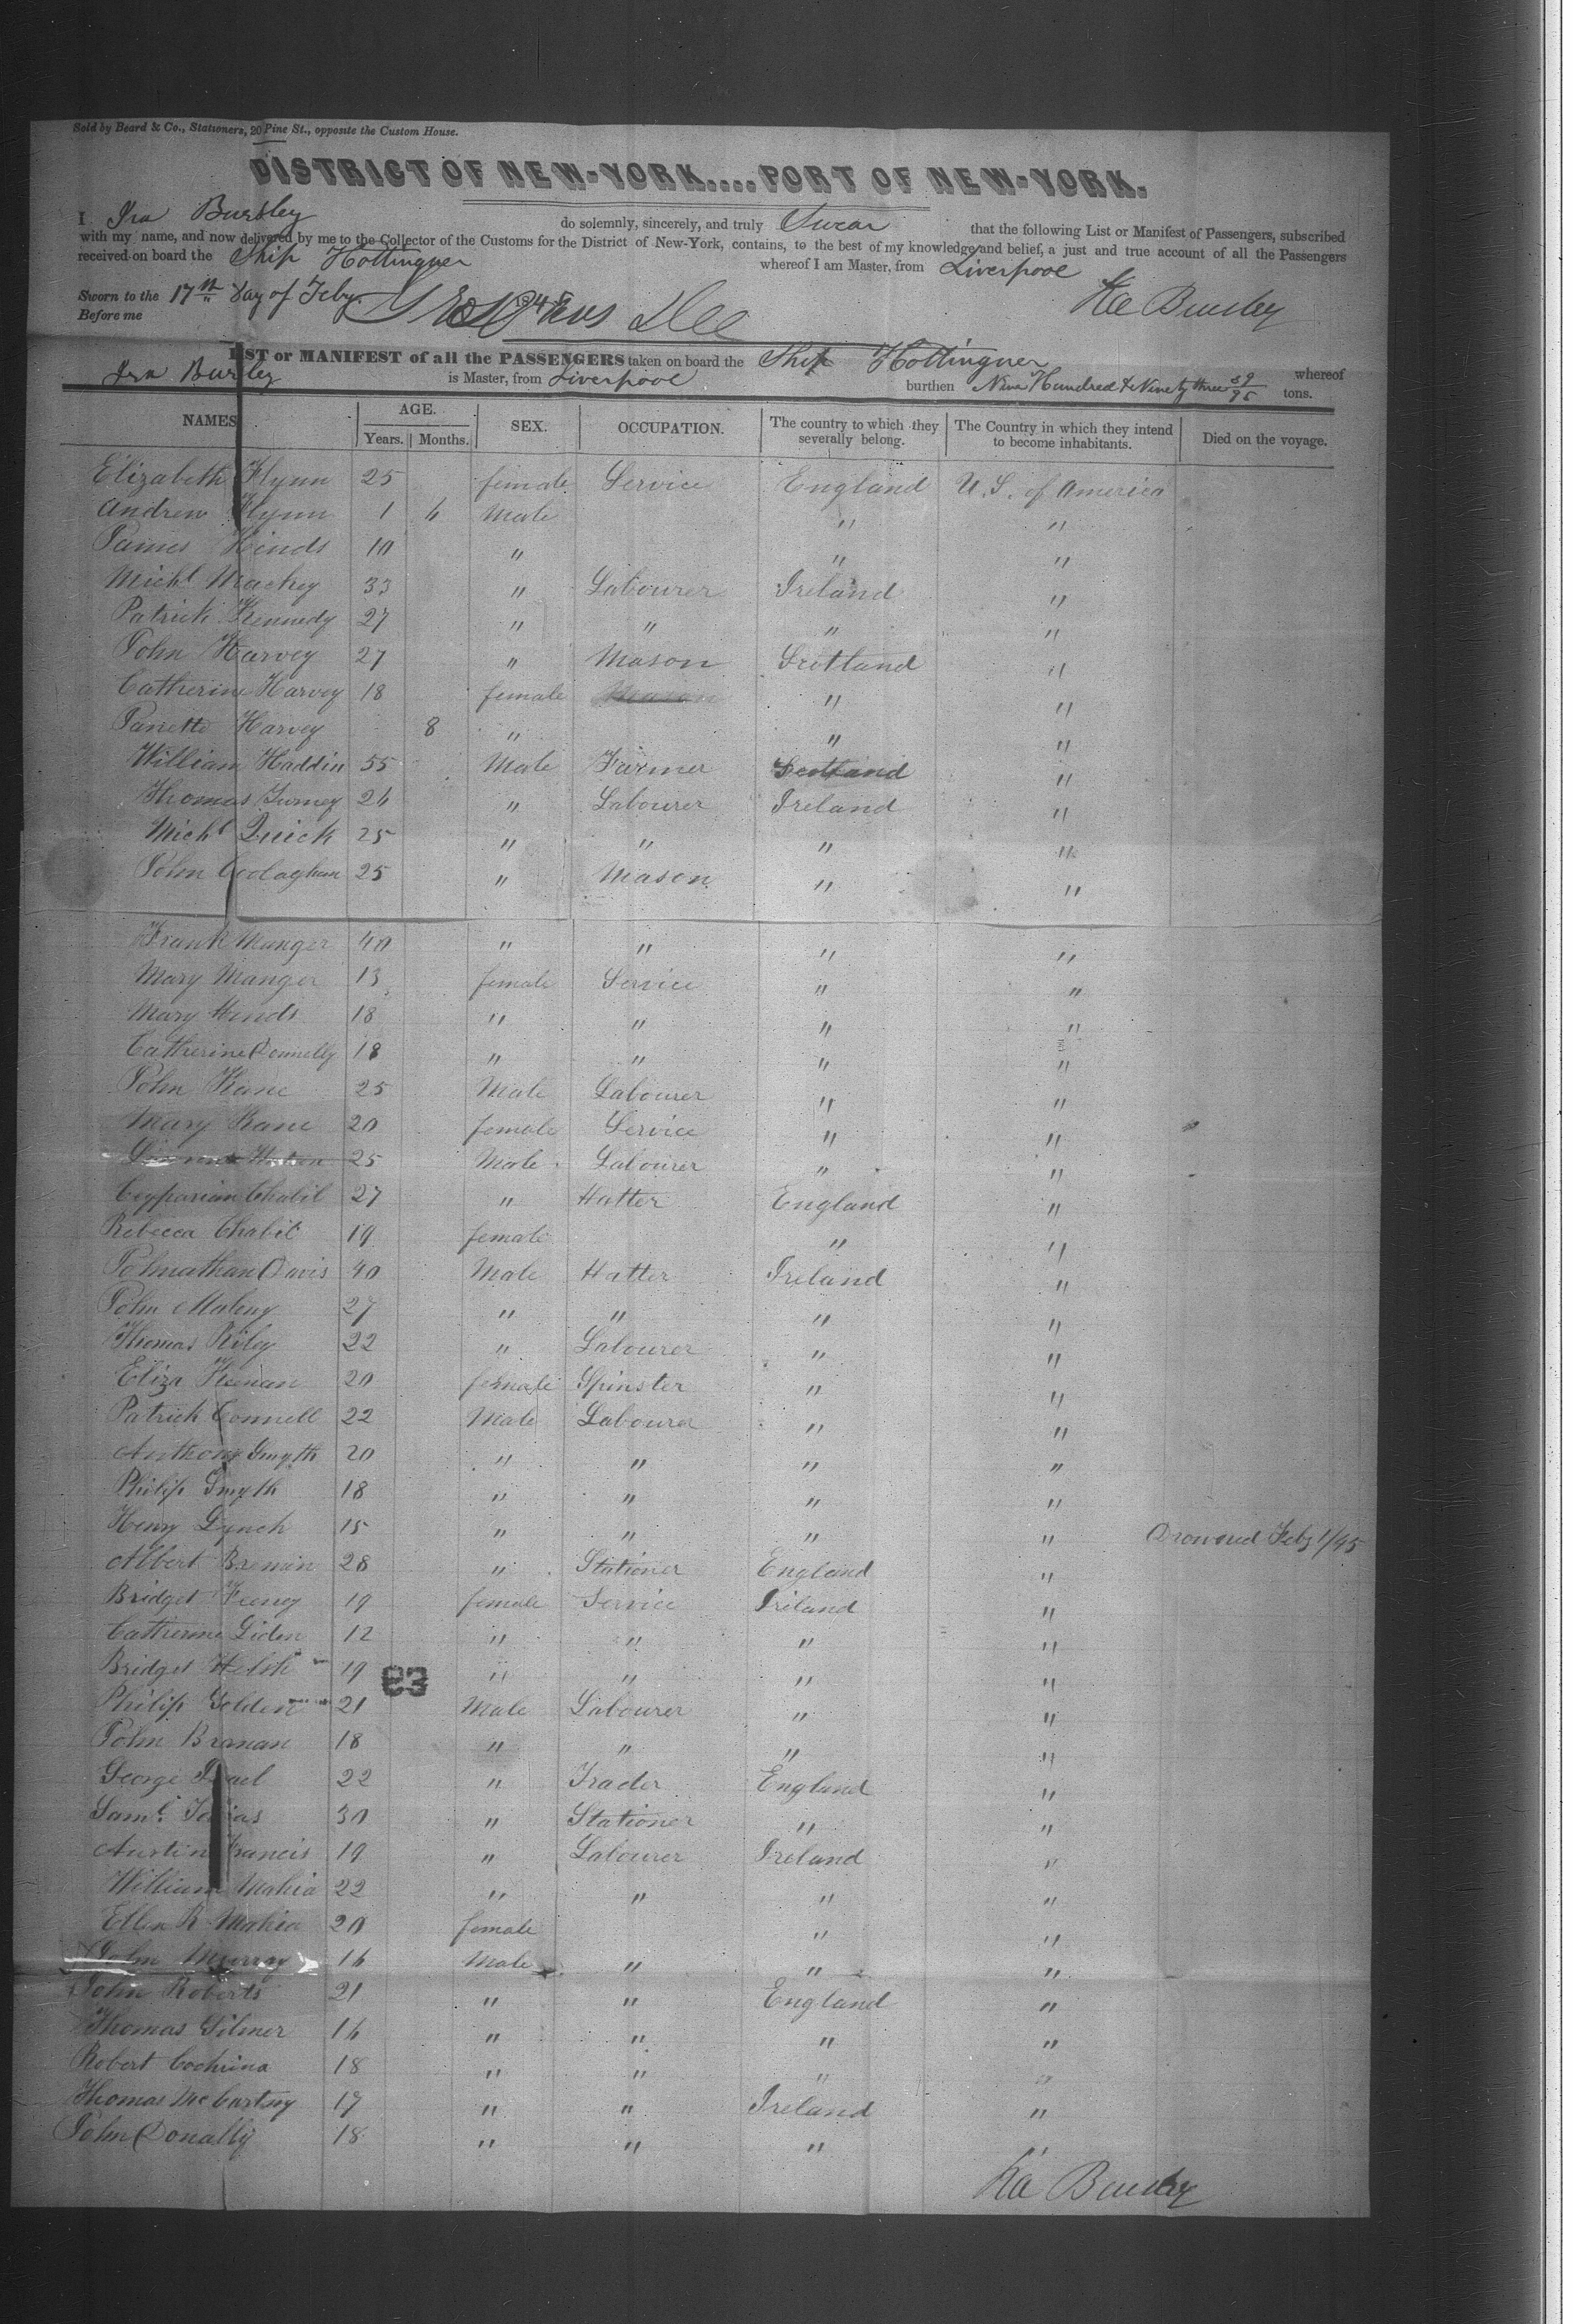 Sold by Beard & Co., Stationers, 20 Pine St., opposite the Custom House.
DISTRICT OF NEW-YORK....PORT OF NEW-YORK.
I Ira Bursley do solemnly, sincerely, and truly Swear that the following List or Manifest of Passengers, subscribed
with my name, and now delivered by me to the Collector of the Customs for the District of New-York, contains, to the best of my knowledge and belief, a just and true account of all the Passengers
received on board the Ship Hottinguer whereof I am Master, from Liverpool
Sworn to the 17th Day of Feby. 184
Before me
Ira Bursley
LIST or MANIFEST of all the PASSENGERS taken on board the Ship Hottinguer whereof
Ira Bursley is Master, from Liverpool burthen Nine Hundred & Ninety three 59/95 tons.
NAMES AGE. Years. Months. SEX. OCCUPATION. The country to which they severally belong. The Country in which they intend to become inhabitants. Died on the voyage.
Elizabeth Flynn 25 female Service England U.S. of America
Andrew Flynn 1 6 Male " "
James Hinds 10 " " "
Michl Mackey 33 " Labourer Ireland "
Patrick Kennedy 27 " " " "
John Harvey 27 " Mason Scotland "
Catherine Harvey 18 female Mason " "
Janette Harvey 8 " " "
William Haddin 55 Male Farmer Scotland "
Thomas Turney 26 " Labourer Ireland "
Michl Quick 25 " " " "
John Coolaghan 25 " Mason " "
Frank Manger 40 " " " "
Mary Manger 13 female Service " "
Mary Hinds 18 " " " "
Catherine Donnelly 18 " " " "
John Kane 25 Male Labourer " "
Mary Kane 20 female Service " "
25 Male Labourer " "
Cyparian Chabil 27 " Hatter England "
Rebecca Chabil 19 female " "
Johnathan Davis 40 Male Hatter Ireland "
John Maleny 27 " " " "
Thomas Riley 22 " Labourer " "
Eliza Keenan 20 female Spinster " "
Patrick Connell 22 Male Labourer " "
Anthony Smyth 20 " " " "
Philip Smyth 18 " " " "
Henry Lynch 15 " " " " Drowned Feby 1/45
Albert Bremin 28 " Stationer England "
Bridget Feeney 19 female Service Ireland "
Catherine Liden 12 " " " "
Bridget Welsh 19 " " " "
83
Philip Golden 21 Male Labourer " "
John Branan 18 " " " "
George Israel 22 " Trader England "
Saml. Tobias 30 " Stationer " "
Austin Francis 19 " Labourer Ireland "
William Mahia 22 " " " "
Ellen R Mahia 20 female " "
John Murray 16 Male " " "
John Roberts 21 " " England "
Thomas Gilmer 16 " " " "
Robert Cochrina 18 " " " "
Thomas McCartny 17 " " Ireland "
John Donally 18 " " " "
Ira Bursley